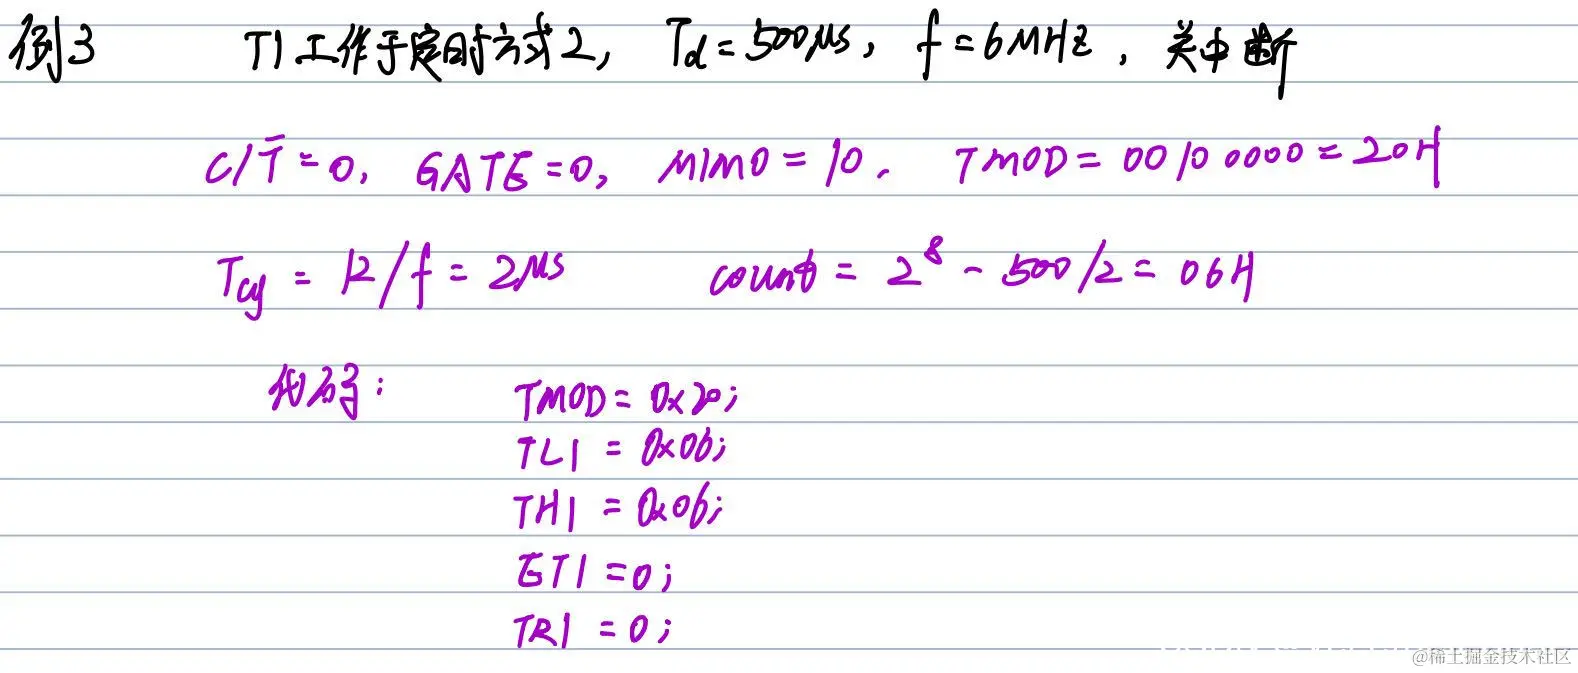 例3 T1工作于定时方式2, Td=500μs, f=6MHz, 关中断
C/T̅=0, GATE=0, M1M0=10. TMOD=00100000=20H
Tcy = 12/f = 2μs count = 2⁸ - 500/2 = 06H
代码: TMOD=0x20;
TL1 = 0x06;
TH1 = 0x06;
ET1=0;
TR1 =0;
@稀土掘金技术社区